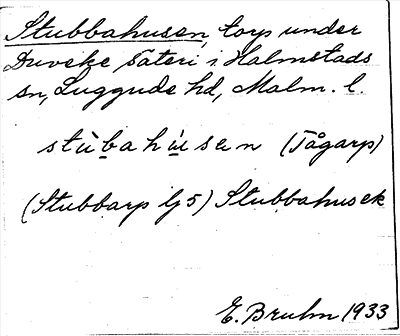 Stubbahusen, torp under
Duveke säteri i Halmstads
sn, Luggude hd, Malm. l.
stùbahùsen (Tågarp)
(Stubbarp lj 5) Stubbahusek
E. Bruhn 1933